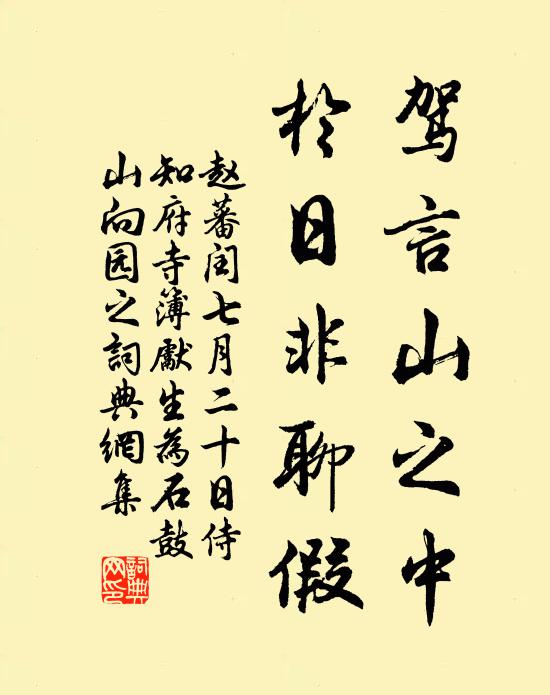 驾言山之中
於日非聊假
赵蕃闰七月二十日侍
知府寺簿獻生為石鼓
山向园之詞典網集
詞典
网印